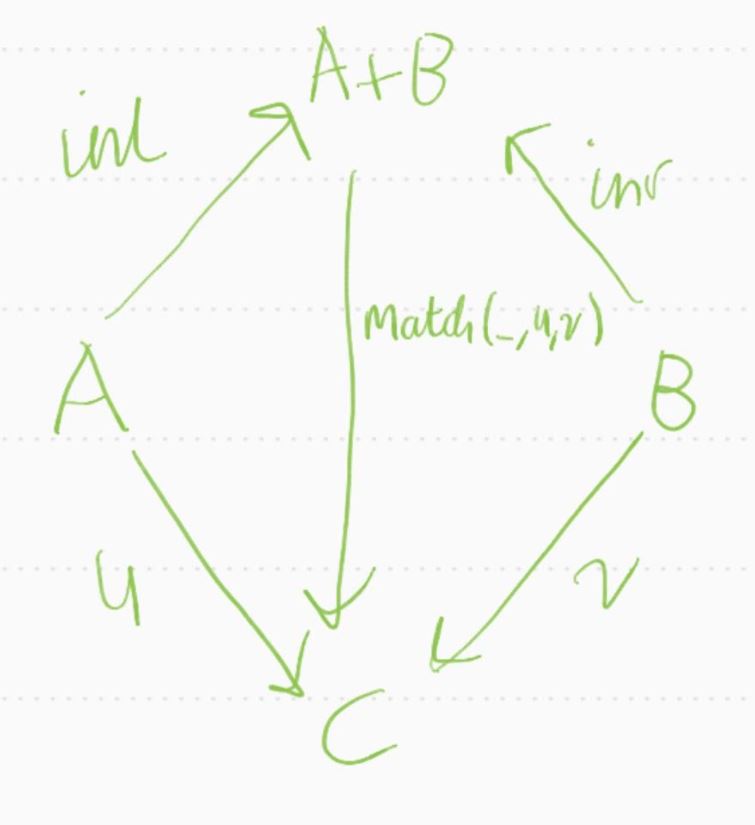 A+B
inl
inr
Match(_,u,v)
A
B
u
v
C